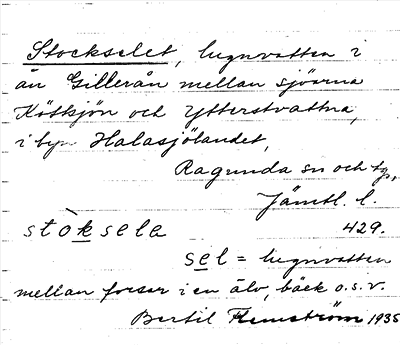 Stockselet, lugnvatten i
ån Gillerån mellan sjöarna
Kötsjön och Ytterstvattna,
i byn Halasjölandet,
Ragunda sn och tg,
Jämtl. l.
stòksela 429.
sel = lugnvatten
mellan forsar i en älv, bäck o.s.v.
Bertil Flemström 1935